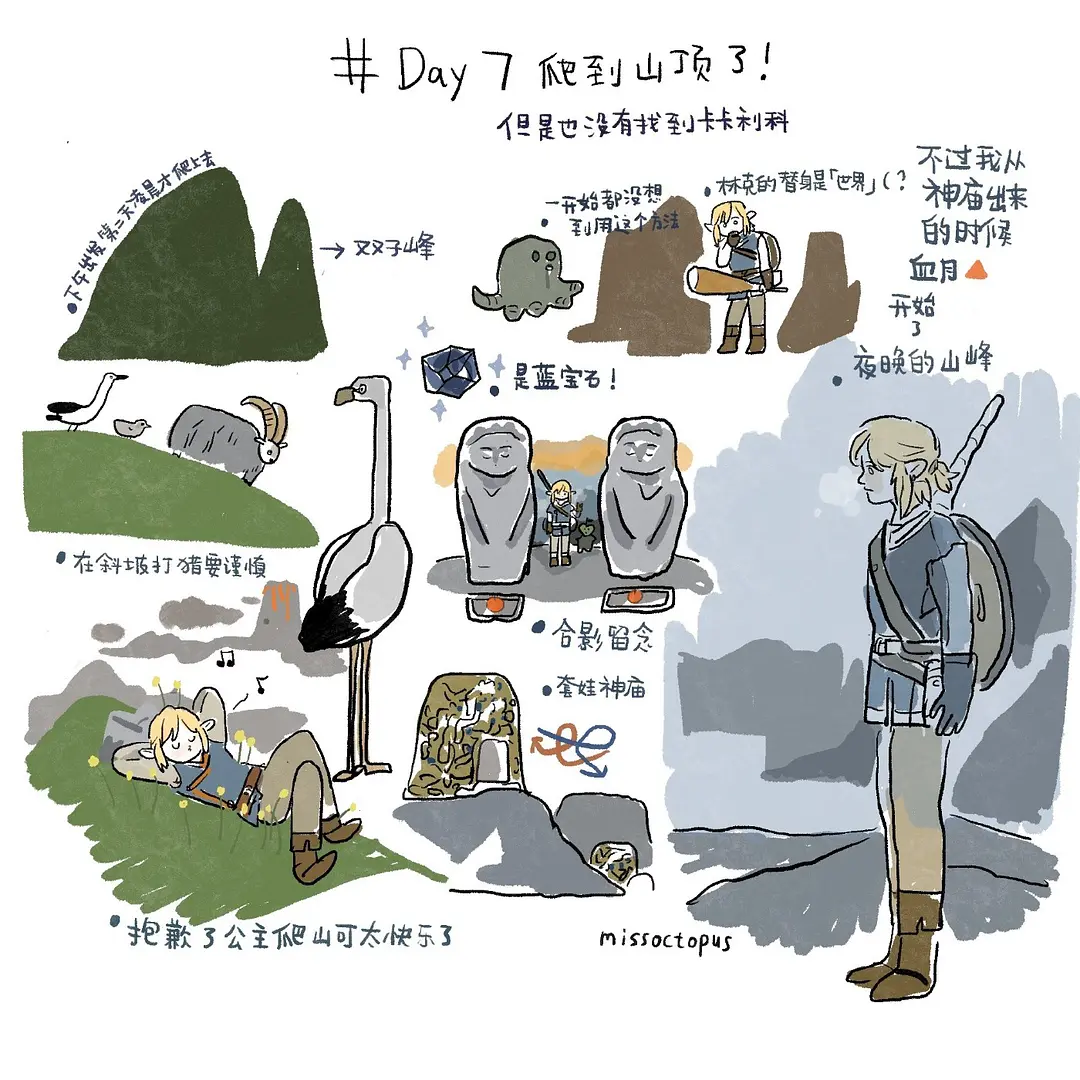 # Day 7 爬到山顶了!
但是也没有找到卡卡利科
下午出发第二天凌晨才爬上去
→ 双子峰
一开始都没想
到用这个方法
林克的替身是「世界」(?
不过我从
神庙出来
的时候
血月
开始
了
夜晚的山峰
是蓝宝石!
在斜坡打猪要谨慎
合影留念
套娃神庙
抱歉了公主爬山可太快乐了
missoctopus